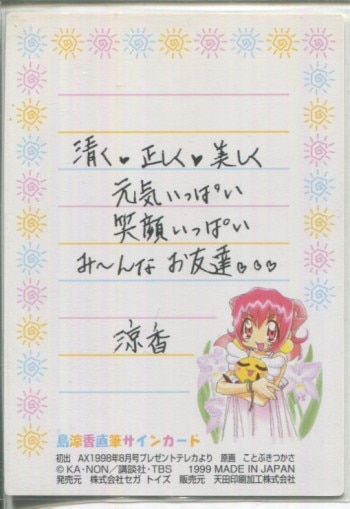 清く♥正しく♥美しく
元気いっぱい
笑顔いっぱい
み〜んな お友達♡♡♡
涼香
島涼香直筆サインカード
初出 AX1998年8月号プレゼントテレカより 原画 ことぶきつかさ
©KA・NON／講談社・TBS 1999 MADE IN JAPAN
発売元 株式会社セガ トイズ 販売元 天田印刷加工株式会社